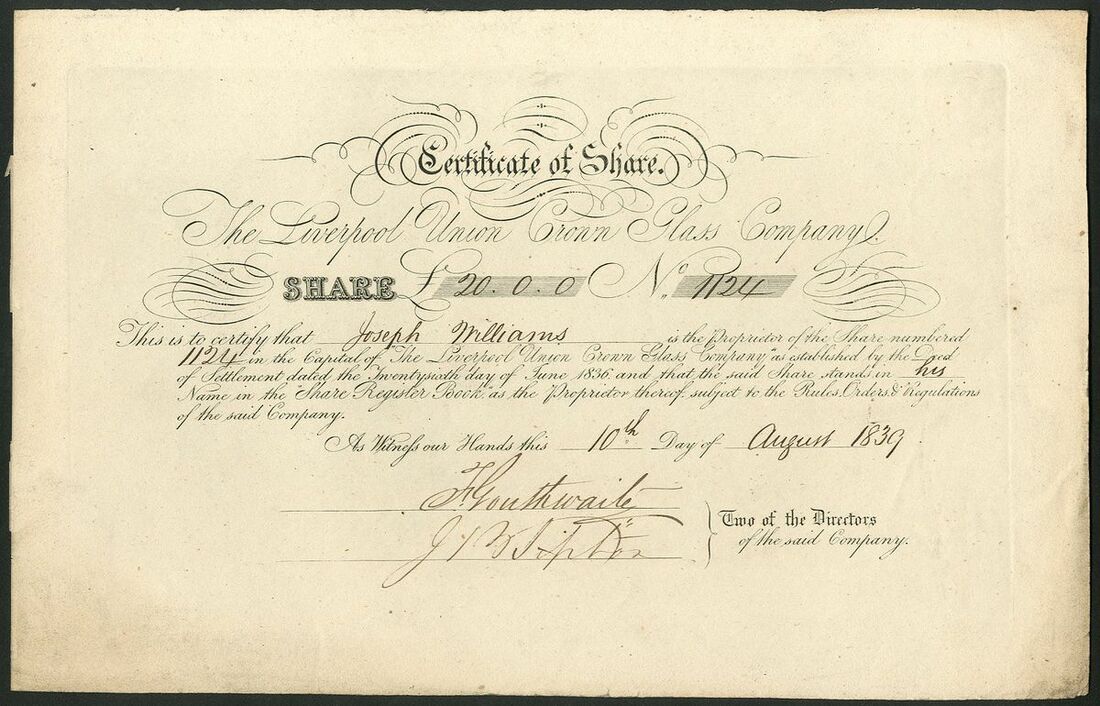 Certificate of Share.
The Liverpool Union Crown Glass Company.
SHARE £ 20.0.0 No. 1124
This is to certify that Joseph Williams is the Proprietor of the Share numbered
1124 in the Capital of "The Liverpool Union Crown Glass Company" as established by the Deed
of Settlement dated the Twentysixth day of June 1836 and that the said Share stands in his
Name in the "Share Register Book" as the Proprietor thereof, subject to the Rules, Orders, & Regulations
of the said Company.
As Witness our Hands this 10th Day of August 1839
Two of the Directors
of the said Company.